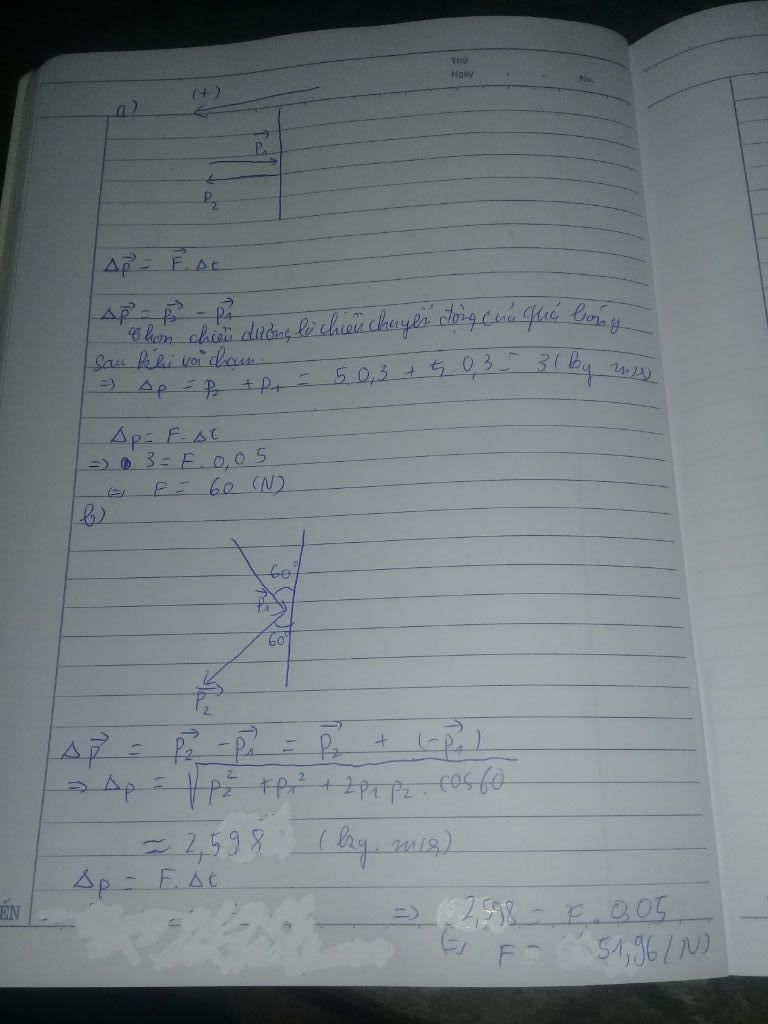 Thứ
Ngày . . No.
a) (+)
p₁⃗
p₂
Δp⃗ = F⃗.Δt
Δp⃗ = p₂⃗ - p₁⃗
Chọn chiều dương là chiều chuyển động của quả bóng
sau khi va chạm.
=> Δp = p₂ + p₁ = 5.0,3 + 5.0,3 = 3 (kg m/s)
Δp = F.Δt
=> 3 = F.0,05
<=> F = 60 (N)
b)
60°
p₁⃗
60°
p₂⃗
Δp⃗ = p₂⃗ - p₁⃗ = p₂⃗ + (-p₁⃗)
=> Δp = √(p₂² + p₁² + 2p₁p₂.cos60)
≈ 2,598 (kg.m/s)
Δp = F.Δt
ẾN => 2,598 = F.0,05
<=> F = 51,96 (N)